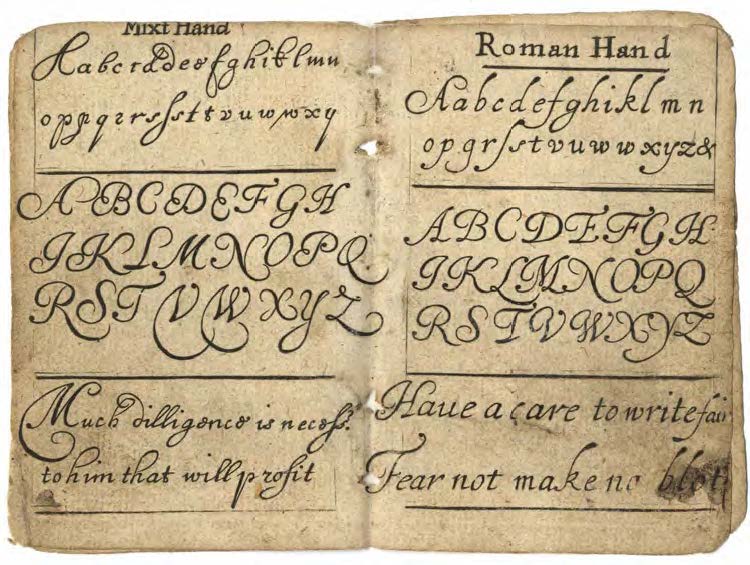 Mixt Hand
Aabcrddeefghiklmn
oppqrrsſsttvuwwxy
ABBCDDEFGH
IJKLMNOPQ
RSTVWXYZ
Much dilligence is necess:
to him that will profit
Roman Hand
Aabcdefghiklmn
opqrſstvuwwxyz&
ABCDEFGH
IKLMNOPQ
RSTVWXYZ
Haue a care to write fair
Fear not make no blot